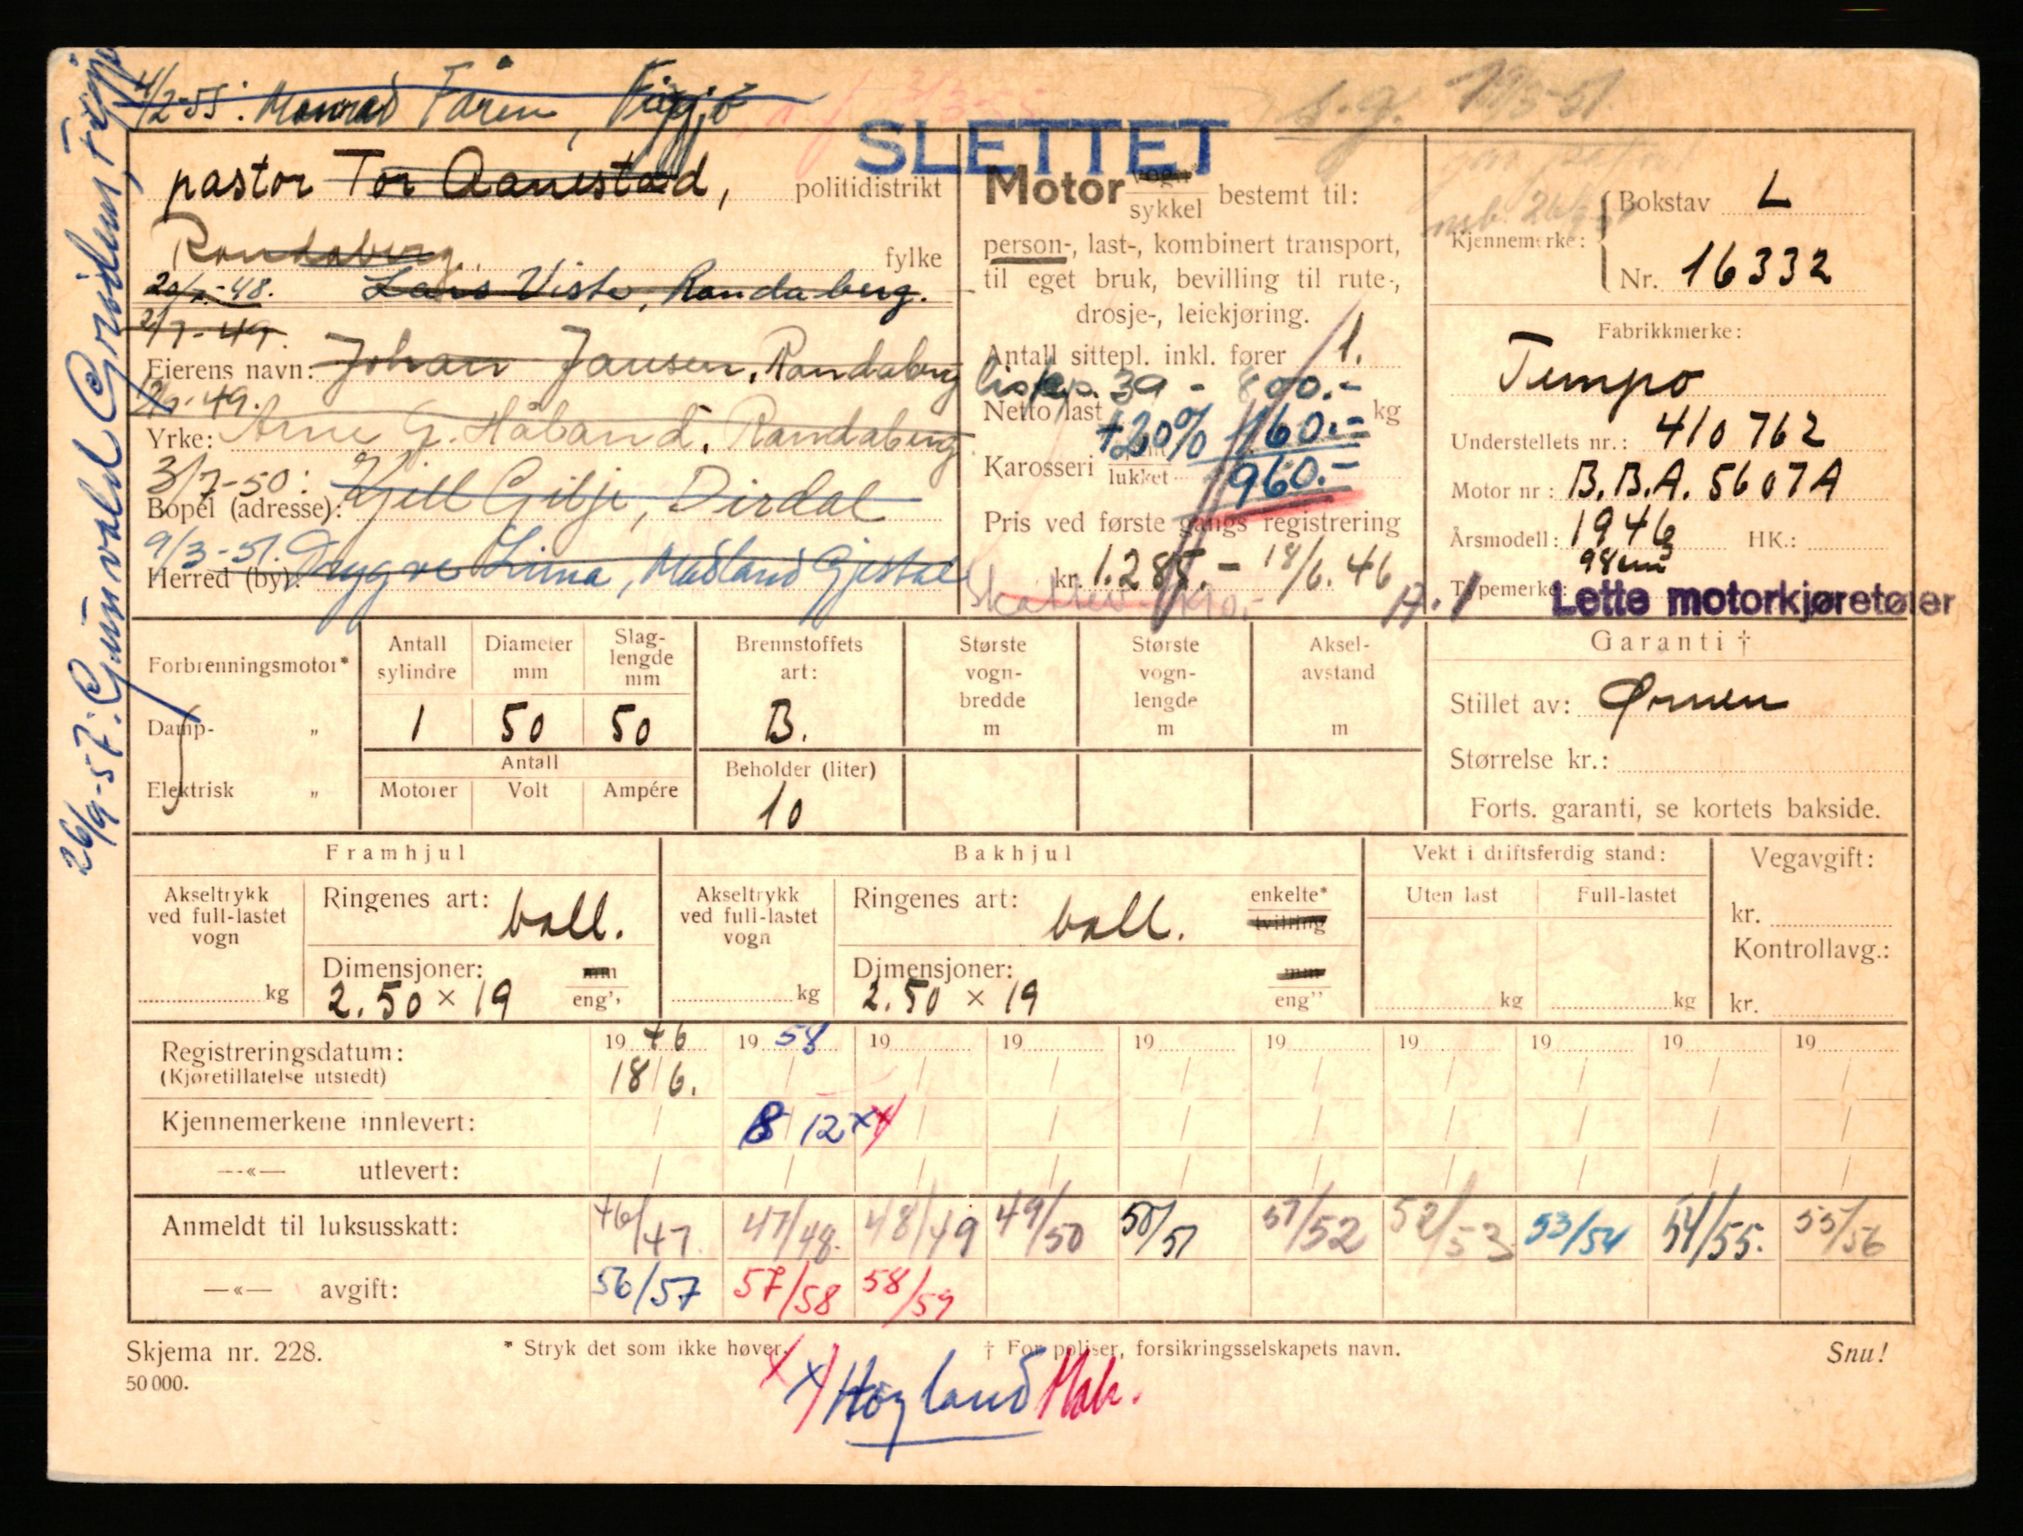 4/2-55: Monrad Fåren, Figgjo
s.g. 13/3-51.
SLETTET
pastor Tor Aanestad, politidistrikt
Randaberg fylke
20/7-48. Lars Viste, Randaberg.
2/7-49.
Eierens navn: Johan Jansen, Randaberg
Yrke: Arne G. Håland, Randaberg
3/7-50: Kjell Gilje, Dirdal
Bopel (adresse):
9/3-51. Trygve Lima, Madland Gjestal
Herred (by):
26/9-57: Gunvald Grødem, Figgjo
Motor vogn sykkel bestemt til:
person-, last-, kombinert transport,
til eget bruk, bevilling til rute-,
drosje-, leiekjøring.
Antall sittepl. inkl. fører 1.
39 - 800.-
Netto last kg
+20% 160.-
Karosseri lukket 960.-
Pris ved første gangs registrering
kr. 1.285.- 18/6.46
Kjennemerke: Bokstav L
Nr. 16332
Fabrikkmerke:
Tempo
Understellets nr.: 410762
Motor nr: B.B.A. 5607A
Årsmodell: 1946 HK.:
98cm³
Typemerke: A.1 Lette motorkjøretøier
Forbrenningsmotor*
Damp- „
Elektrisk „
Antall sylindre Diameter mm Slag-lengde mm Brennstoffets art: Største vogn-bredde m Største vogn-lengde m Aksel-avstand m
1 50 50 B.
Antall Beholder (liter)
Motorer Volt Ampére 10
Garanti †
Stillet av: Ørnen
Størrelse kr.:
Forts. garanti, se kortets bakside.
Framhjul Bakhjul Vekt i driftsferdig stand: Vegavgift:
Akseltrykk ved full-lastet vogn kg Ringenes art: ball. Akseltrykk ved full-lastet vogn kg Ringenes art: ball. enkelte* tvilring Uten last kg Full-lastet kg kr.
Dimensjoner: 2.50 × 19 mm eng" Dimensjoner: 2.50 × 19 mm eng" Kontrollavg.:
kr.
Registreringsdatum: 1946 1958 19 19 19 19 19 19 19 19
(Kjøretillatelse utstedt) 18/6.
Kjennemerkene innlevert: 8/12 x x)
—«— utlevert:
Anmeldt til luksusskatt: 46/47. 47/48. 48/49 49/50 50/51 51/52 52/53 53/54 54/55. 55/56
—«— avgift: 56/57 57/58 58/59
Skjema nr. 228. * Stryk det som ikke høver. † For poliser, forsikringsselskapets navn. Snu!
50 000.
x) Høyland